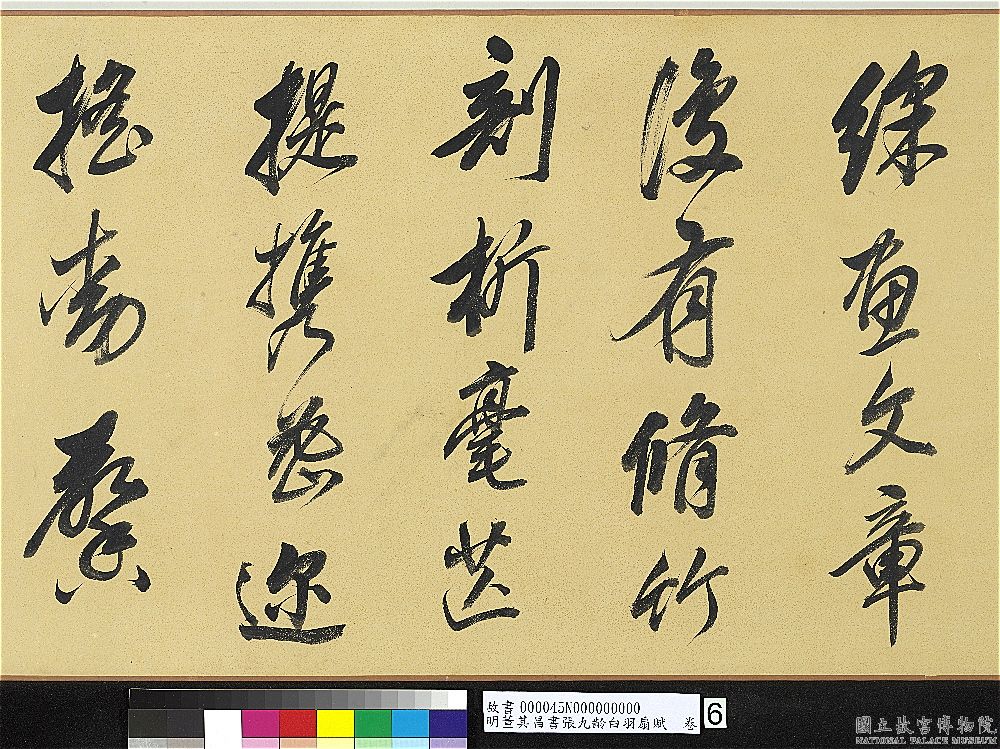 綵畫文章
復有脩竹
剖析毫芒
提攜密迩
搖動馨
故書 000045N000000000
明董其昌書張九齡白羽扇賦 卷
6
國立故宮博物院
NATIONAL PALACE MUSEUM